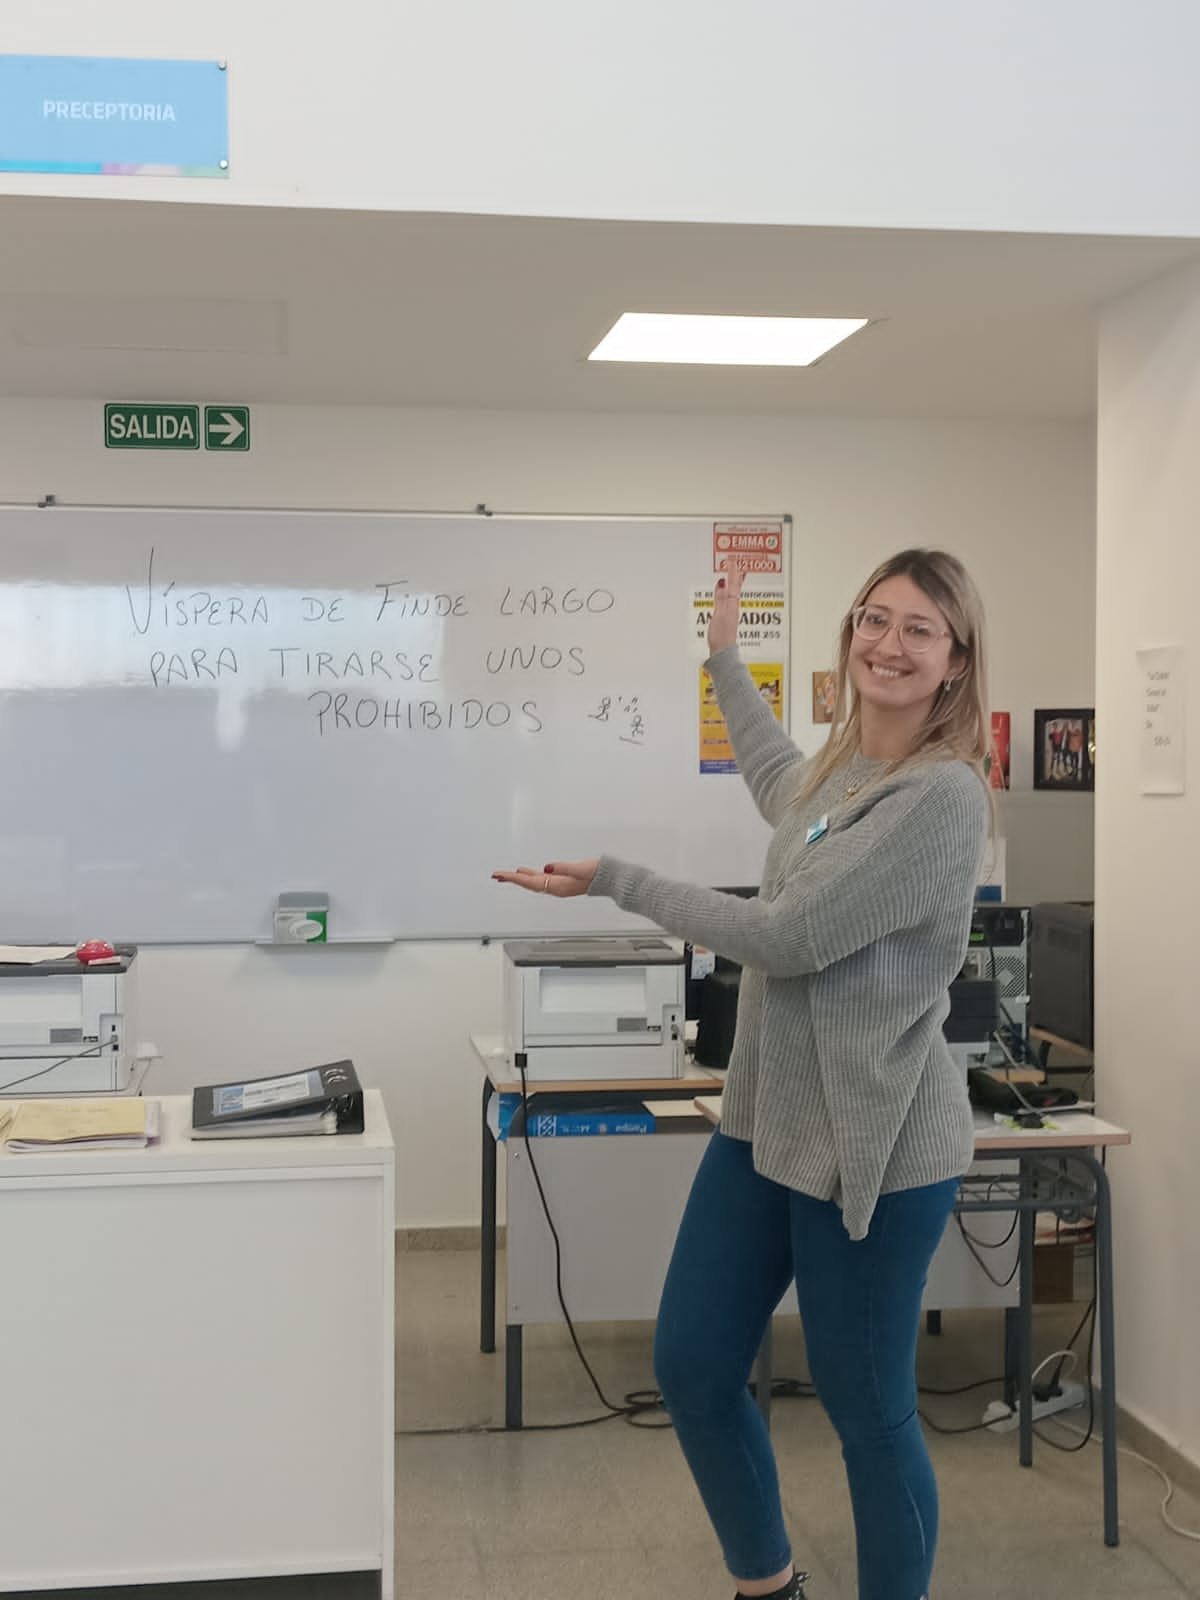 PRECEPTORIA
SALIDA
VÍSPERA DE FINDE LARGO
PARA TIRARSE UNOS
PROHIBIDOS
EMMA
21000
ADOS
255